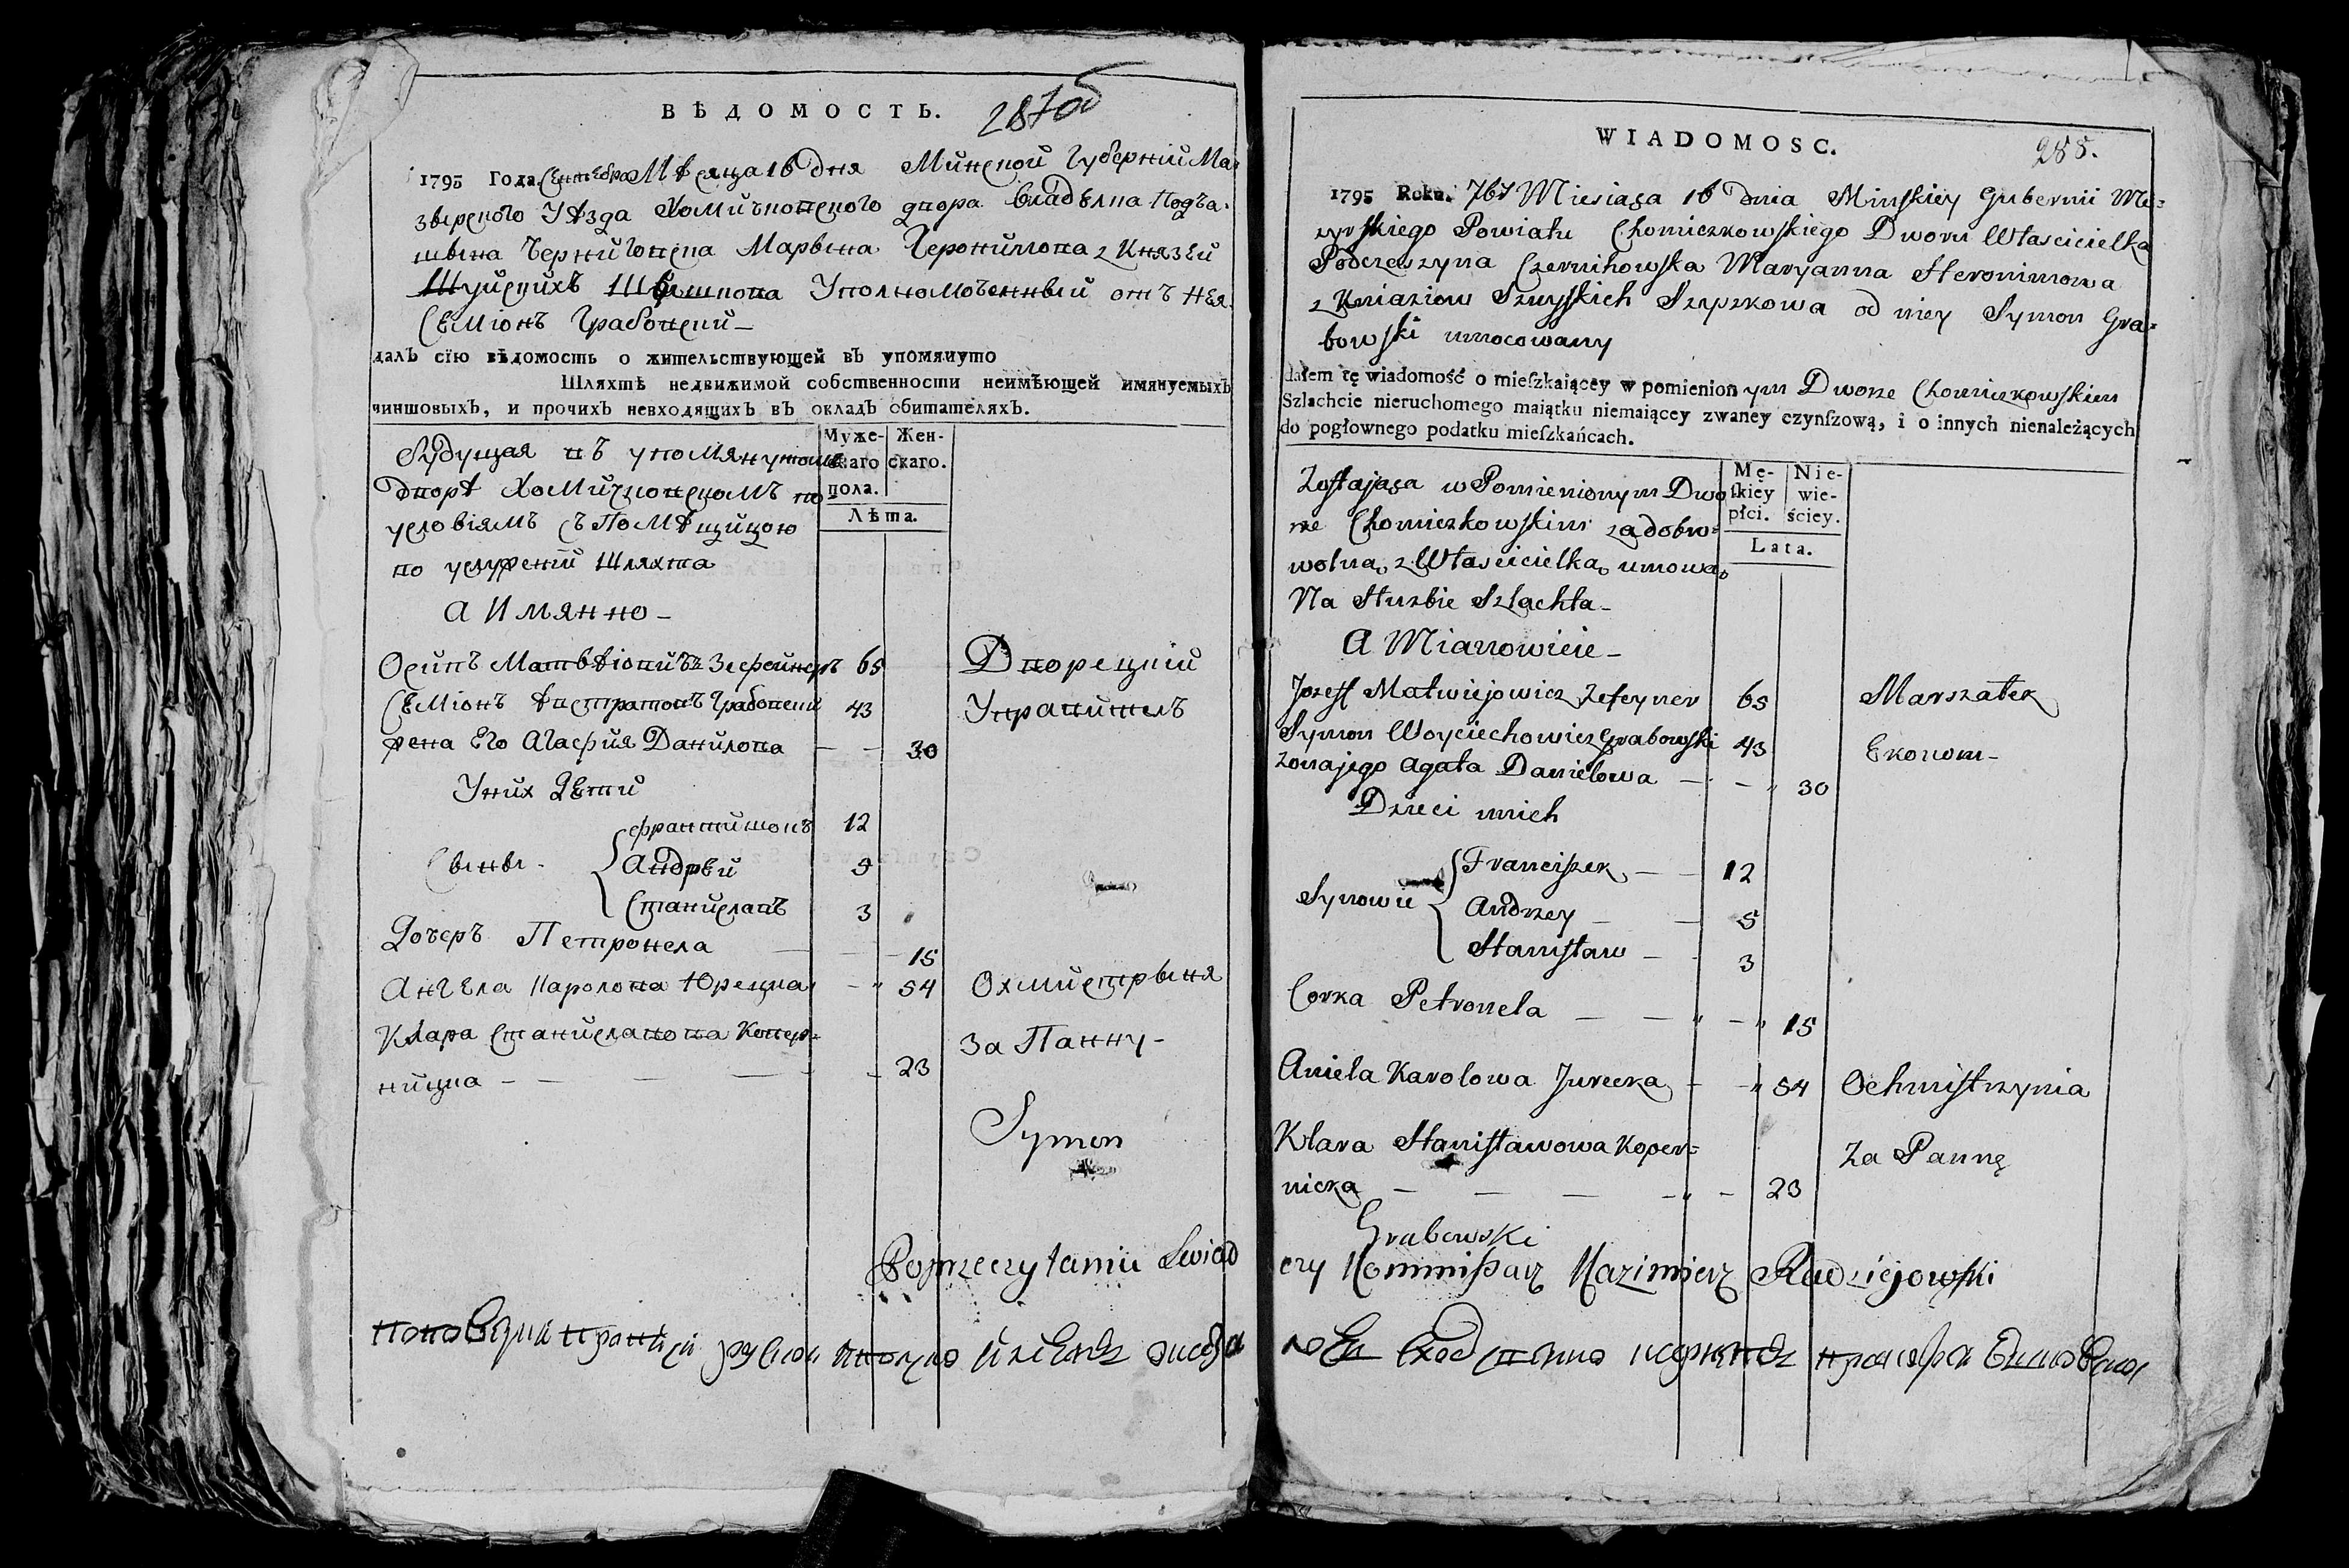 ВѢДОМОСТЬ.
287об
1795 Года Сентебра Мѣсяца 16 дня Минской Губерніи Мо-
зырского Уѣзда Хомичковского двора владѣлца Подча-
шына Чернигопска Марына Героримова з Князей
Шуйскихъ Шышкова Уполномоченный отъ нея
Семіонъ Грабовски
далъ сїю вѣдомость о жительствующей въ упомянуто
Шляхтѣ недвижимой собственности неимѣющей имянуемыхъ
чиншовыхъ, и прочихъ невходящихъ въ окладъ обитателяхъ.
Муже- Жен-
скаго скаго.
пола.
Лѣта.
Будущая въ упомянутомъ
Дворѣ Хомичковскомъ по
условіямъ съ Помѣщицою
по услужений Шляхта
а Имянно
Осипъ Матвѣіовичъ Зефейнеръ 65 Дворецкий
Семіонъ Грабовски 43 Управитель
жена Его Агафия Данилова — — 30
У них Дети
Сыны - Франтишокъ 12
Андрей 5
Станиславъ 3
Дочеръ Петронела — 15
Ангела Каролова Юрецка — 54 Охмистрыня
Клара Станиславова Копер=
ницка — — — 23 За Панну -
Symon
Po przeczytaniu Swiad
WIADOMOSC.
288.
1795 Roku. 7br Miesiąca 16 Dnia Minskiey Gubernii Mo=
zyrskiego Powiatu Chomiczkowskiego Dworu Włascicielka
Podczaszyna Czernihowska Maryanna Heronimowa
z Kniaziow Szuyskich Szyszkowa od niey Symon Gra=
bowski umocowany
dałem tę wiadomość o mieſzkaiącey w pomienionym Dworze Chomiczkowskim
Szlachcie nieruchomego maiątku niemaiącey zwaney czynſzową, i o innych nienależących
do pogłownego podatku mieſzkańcach.
Mę- Nie-
ſkiey wie-
płci. ściey.
Lata.
Zostająca w Pomienionym Dwo
rze Chomiczkowskim za dobro=
wolną z Własicielką umową
Na Służbie Szlachta
A Mianowicie
Jozeff Matwiejowicz Zefeyner 65 Marszałek
Symon Woyciechowicz Grabowski 43 Ekonom
Zona jego Agata Daniełowa — — 30
Dzieci u nich
Synowie Franciszek — 12
Andrzey — 5
Stanisław — 3
Corka Petronela — — 15
Aniela Karolowa Jurecka — 54 Ochmistrzynia
Klara Stanisławowa Koper=
nicka — — — 23 Za Pannę
Grabowski
czy Kommisarz Kazimierz Radziejowski